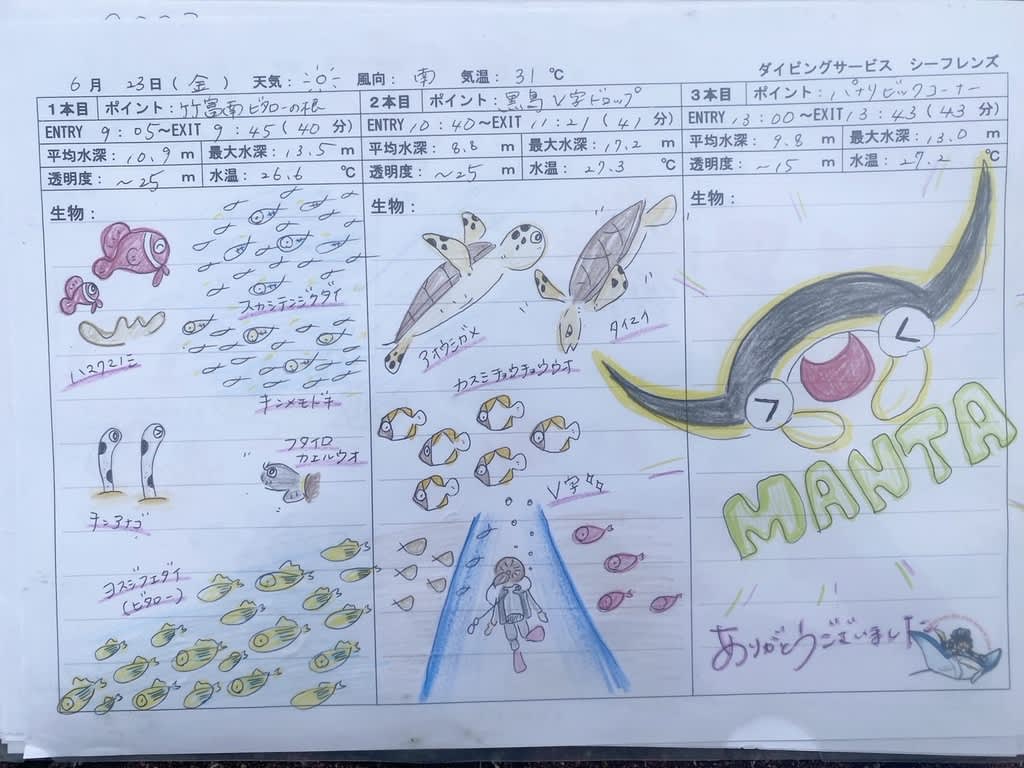 6月 23日(金) 天気: 風向: 南 気温: 31℃
ダイビングサービス シーフレンズ
1本目 ポイント: 竹富南ビタローの根
ENTRY 9:05~EXIT 9:45(40分)
平均水深: 10.9 m 最大水深: 13.5 m
透明度: ~25 m 水温: 26.6 ℃
生物:
スカシテンジクダイ
ハマクマノミ
キンメモドキ
フタイロ
カエルウオ
チンアナゴ
ヨスジフエダイ
(ビタロー)
2本目 ポイント: 黒島V字ドロップ
ENTRY 10:40~EXIT 11:21(41分)
平均水深: 8.8 m 最大水深: 17.2 m
透明度: ~25 m 水温: 27.3 ℃
生物:
アオウミガメ
タイマイ
カスミチョウチョウウオ
V字
3本目 ポイント: パナリビックコーナー
ENTRY 13:00~EXIT 13:43(43分)
平均水深: 9.8 m 最大水深: 13.0 m
透明度: ~15 m 水温: 27.2 ℃
生物:
MANTA
ありがとうございました